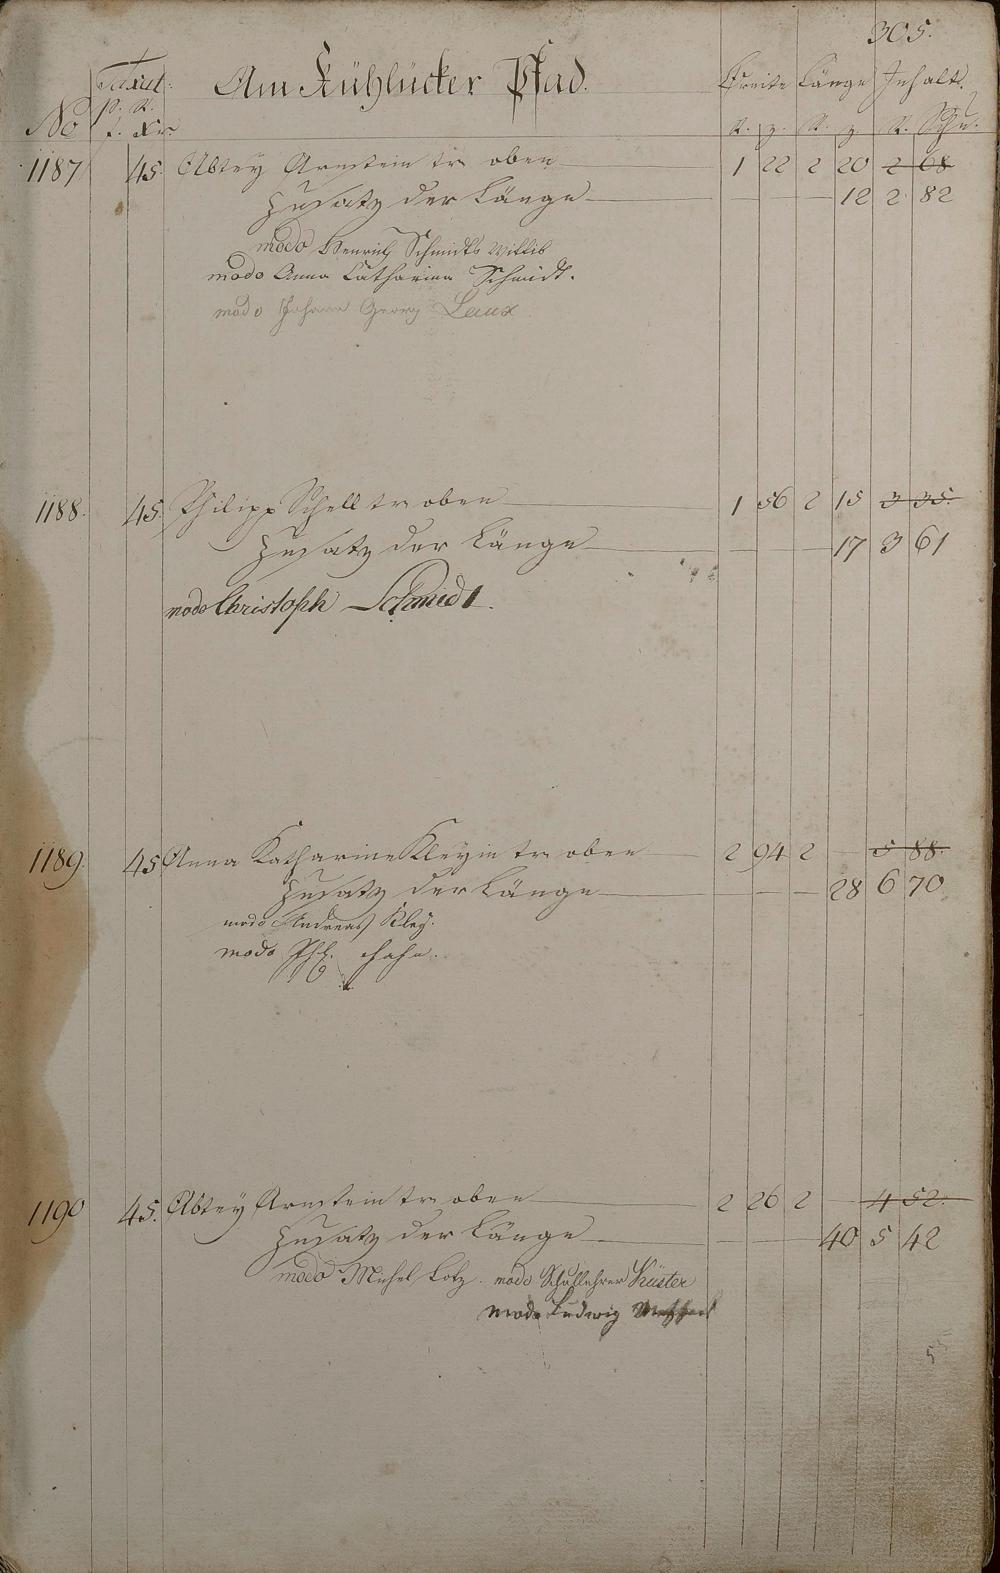 305.
Taxat: Am Kühlücker Pfad. Breite Länge Inhalt.
No p. R. f. Xr. R. z. R. z. R. Schu.
1187 45. Abtey Arnstein tr oben 1 22 2 20 2 68
Zusatz der Länge 12 2 82
modo Henrich Schmidts Wittib
modo Anna Catharina Schmidt.
modo Johann Georg Laux
1188. 45. Philipp Schell tr oben 1 56 2 15 3 35.
Zusatz der Länge 17 3 61
modo Christoph Schmidt.
1189. 45 Anna Katharine Kleyin tr oben 2 94 2 5 88.
Zusatz der Länge 28 6 70
modo Andreas Kley.
modo Phl. Hahn.
1190 45. Abtey Arnstein tr oben 2 26 2 4 52.
Zusatz der Länge 40 5 42
modo Michel Lotz. modo Schullehrer Küster
modo Ludwig